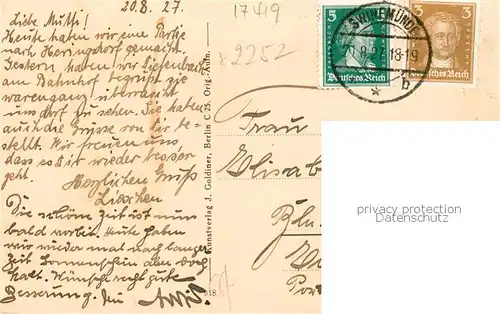 20.8.27.
Liebe Mutti!
Heute haben wir eine Partie
nach Heringsdorf gemacht.
Gestern haben wir
am Bahnhof begrüßt sie
waren ganz überrascht
uns dort zu sehen. Sie haben
auch die Grüsse von dir be-
stellt. Wir freuen uns,
dass es Dir wieder besser
geht.
Herzlichen Gruß
Lieschen
Die schöne Zeit ist nun
bald vorbei. Heute haben
wir wieder mal nach langer
Zeit Sonnenschein aber doch
kalt. Wünsche recht gute
Besserung
17419
2252
Kunstverlag J. Goldiner, Berlin C 25. Orig.-Aufn.
918
5
Deutsches Reich
3
Deutsches Reich
SWINEMÜNDE
8.27.18-19
* b
Frau
Elisab
Bln.
privacy protection
Datenschutz